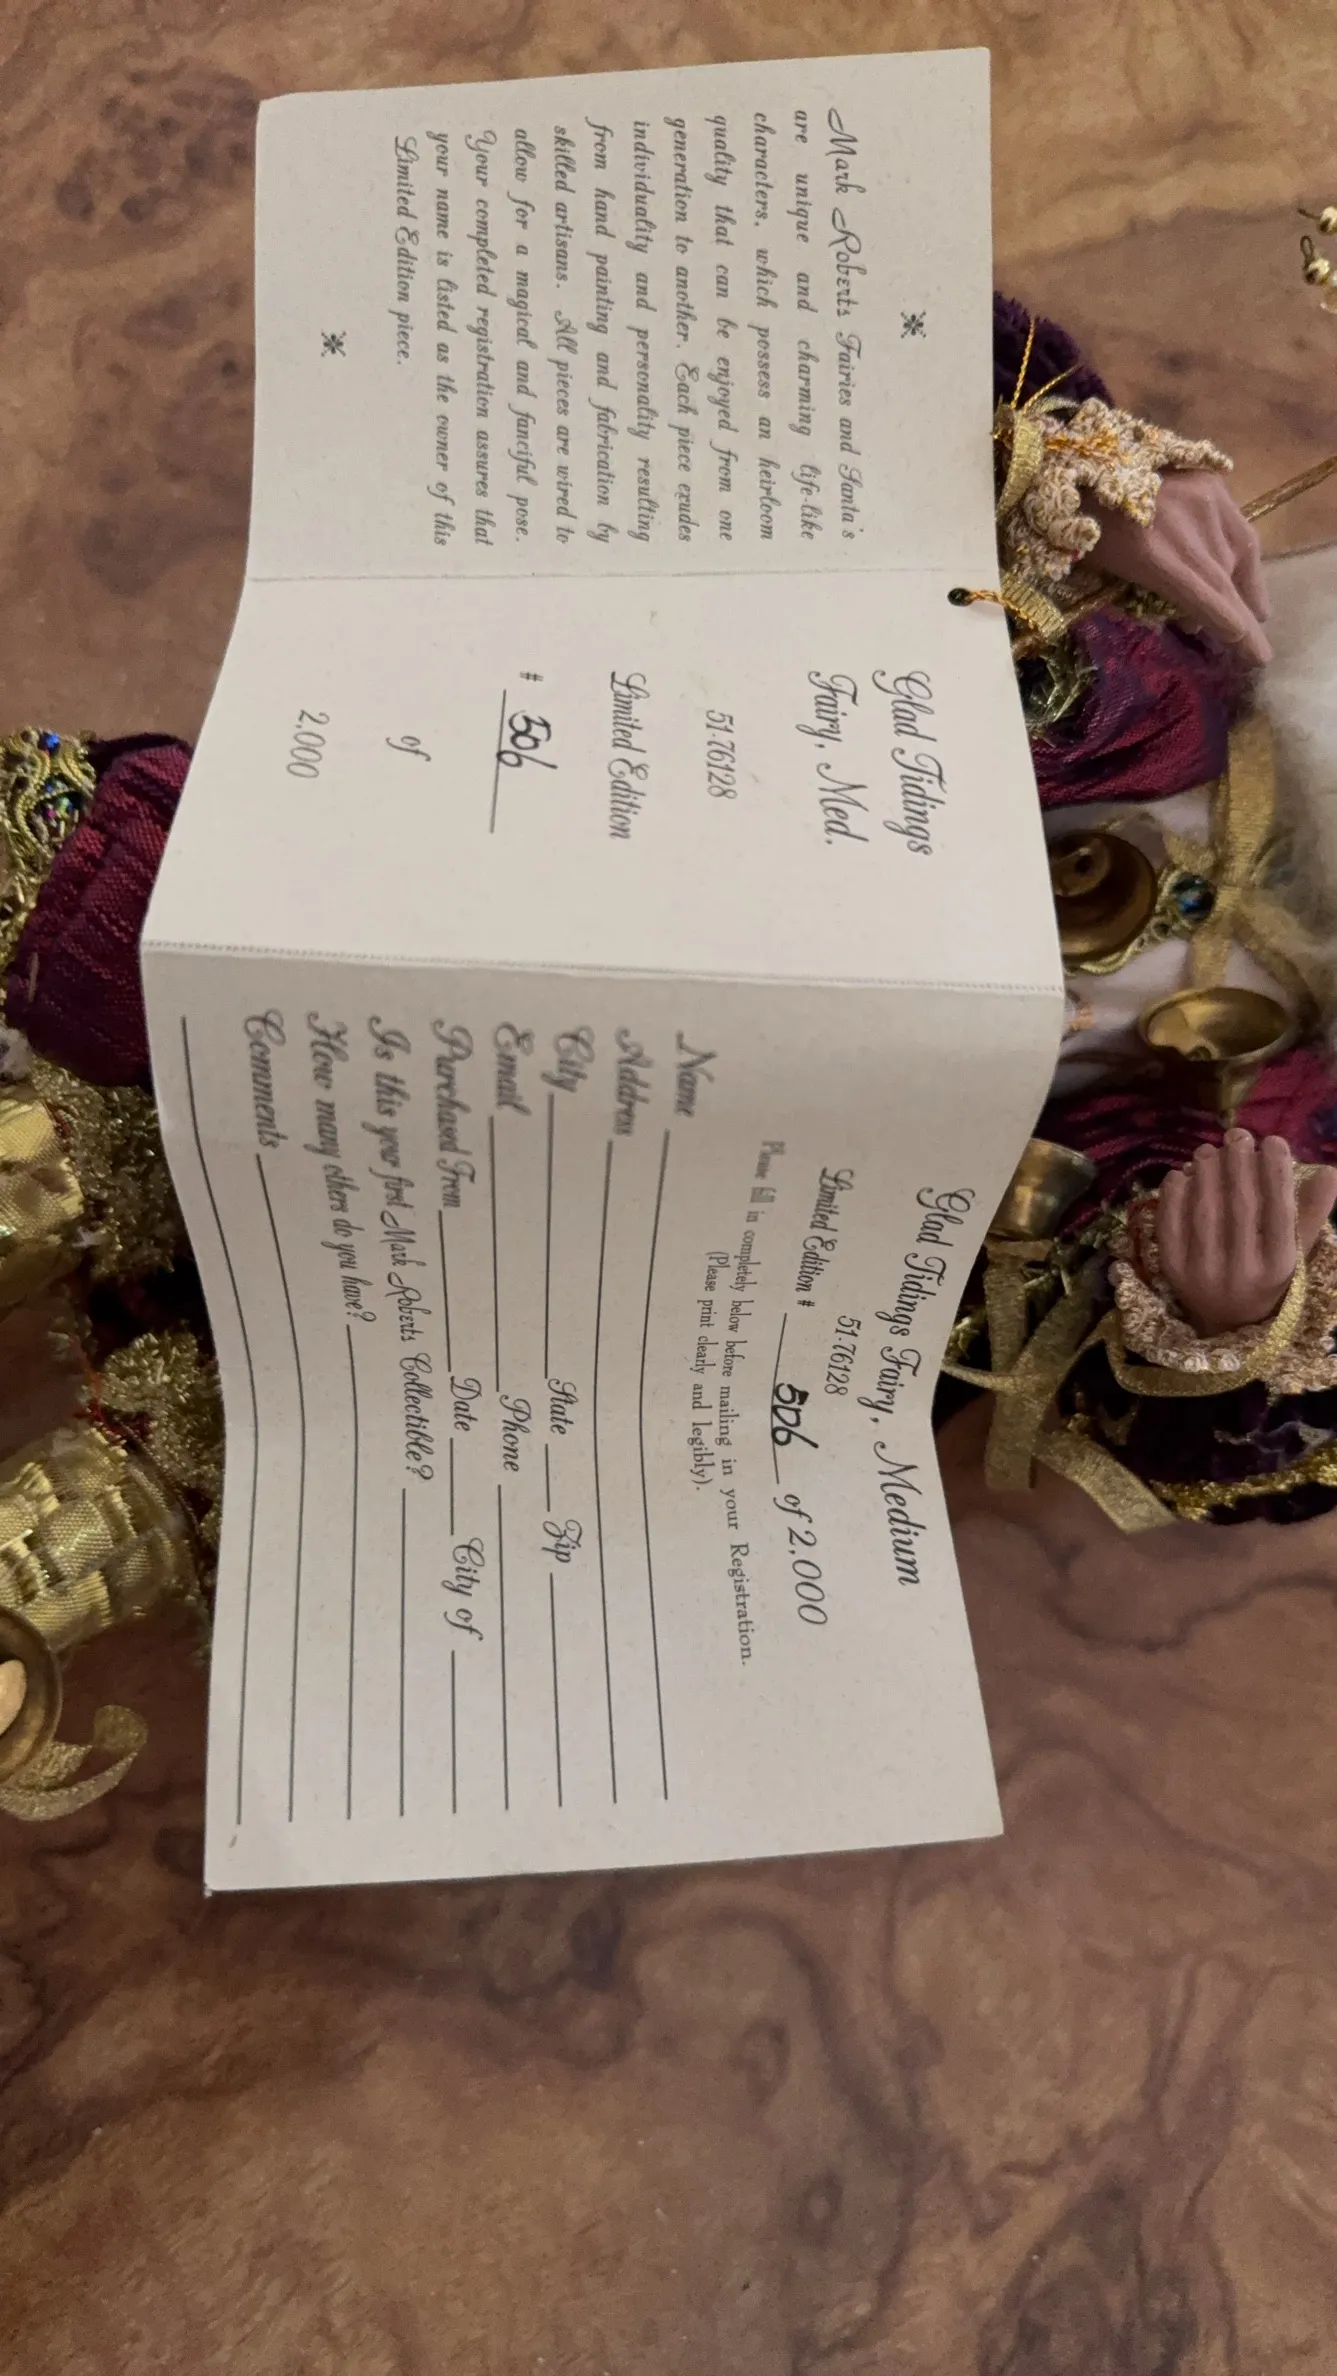 Mark Roberts Fairies and Santa's
are unique and charming life-like
characters, which possess an heirloom
quality that can be enjoyed from one
generation to another. Each piece exudes
individuality and personality resulting
from hand painting and fabrication by
skilled artisans. All pieces are wired to
allow for a magical and fanciful pose.
Your completed registration assures that
your name is listed as the owner of this
Limited Edition piece.
Glad Tidings
Fairy, Med.
51-76128
Limited Edition
# 506
of
2,000
Glad Tidings Fairy, Medium
51-76128
Limited Edition # 506 of 2,000
Please fill in completely below before mailing in your Registration.
(Please print clearly and legibly).
Name
Address
City State Zip
Email Phone
Purchased From Date City of
Is this your first Mark Roberts Collectible?
How many others do you have?
Comments